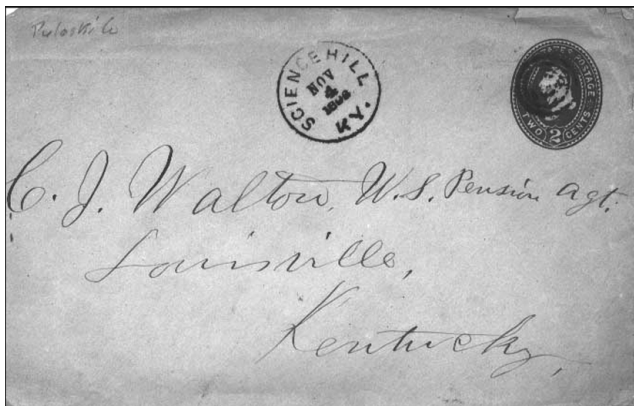 Pulaski Co
SCIENCE HILL
NOV
4
KY.
STATES POSTAGE
TWO 2 CENTS
C. J. Walton, U.S. Pension Agt.
Louisville,
Kentucky,